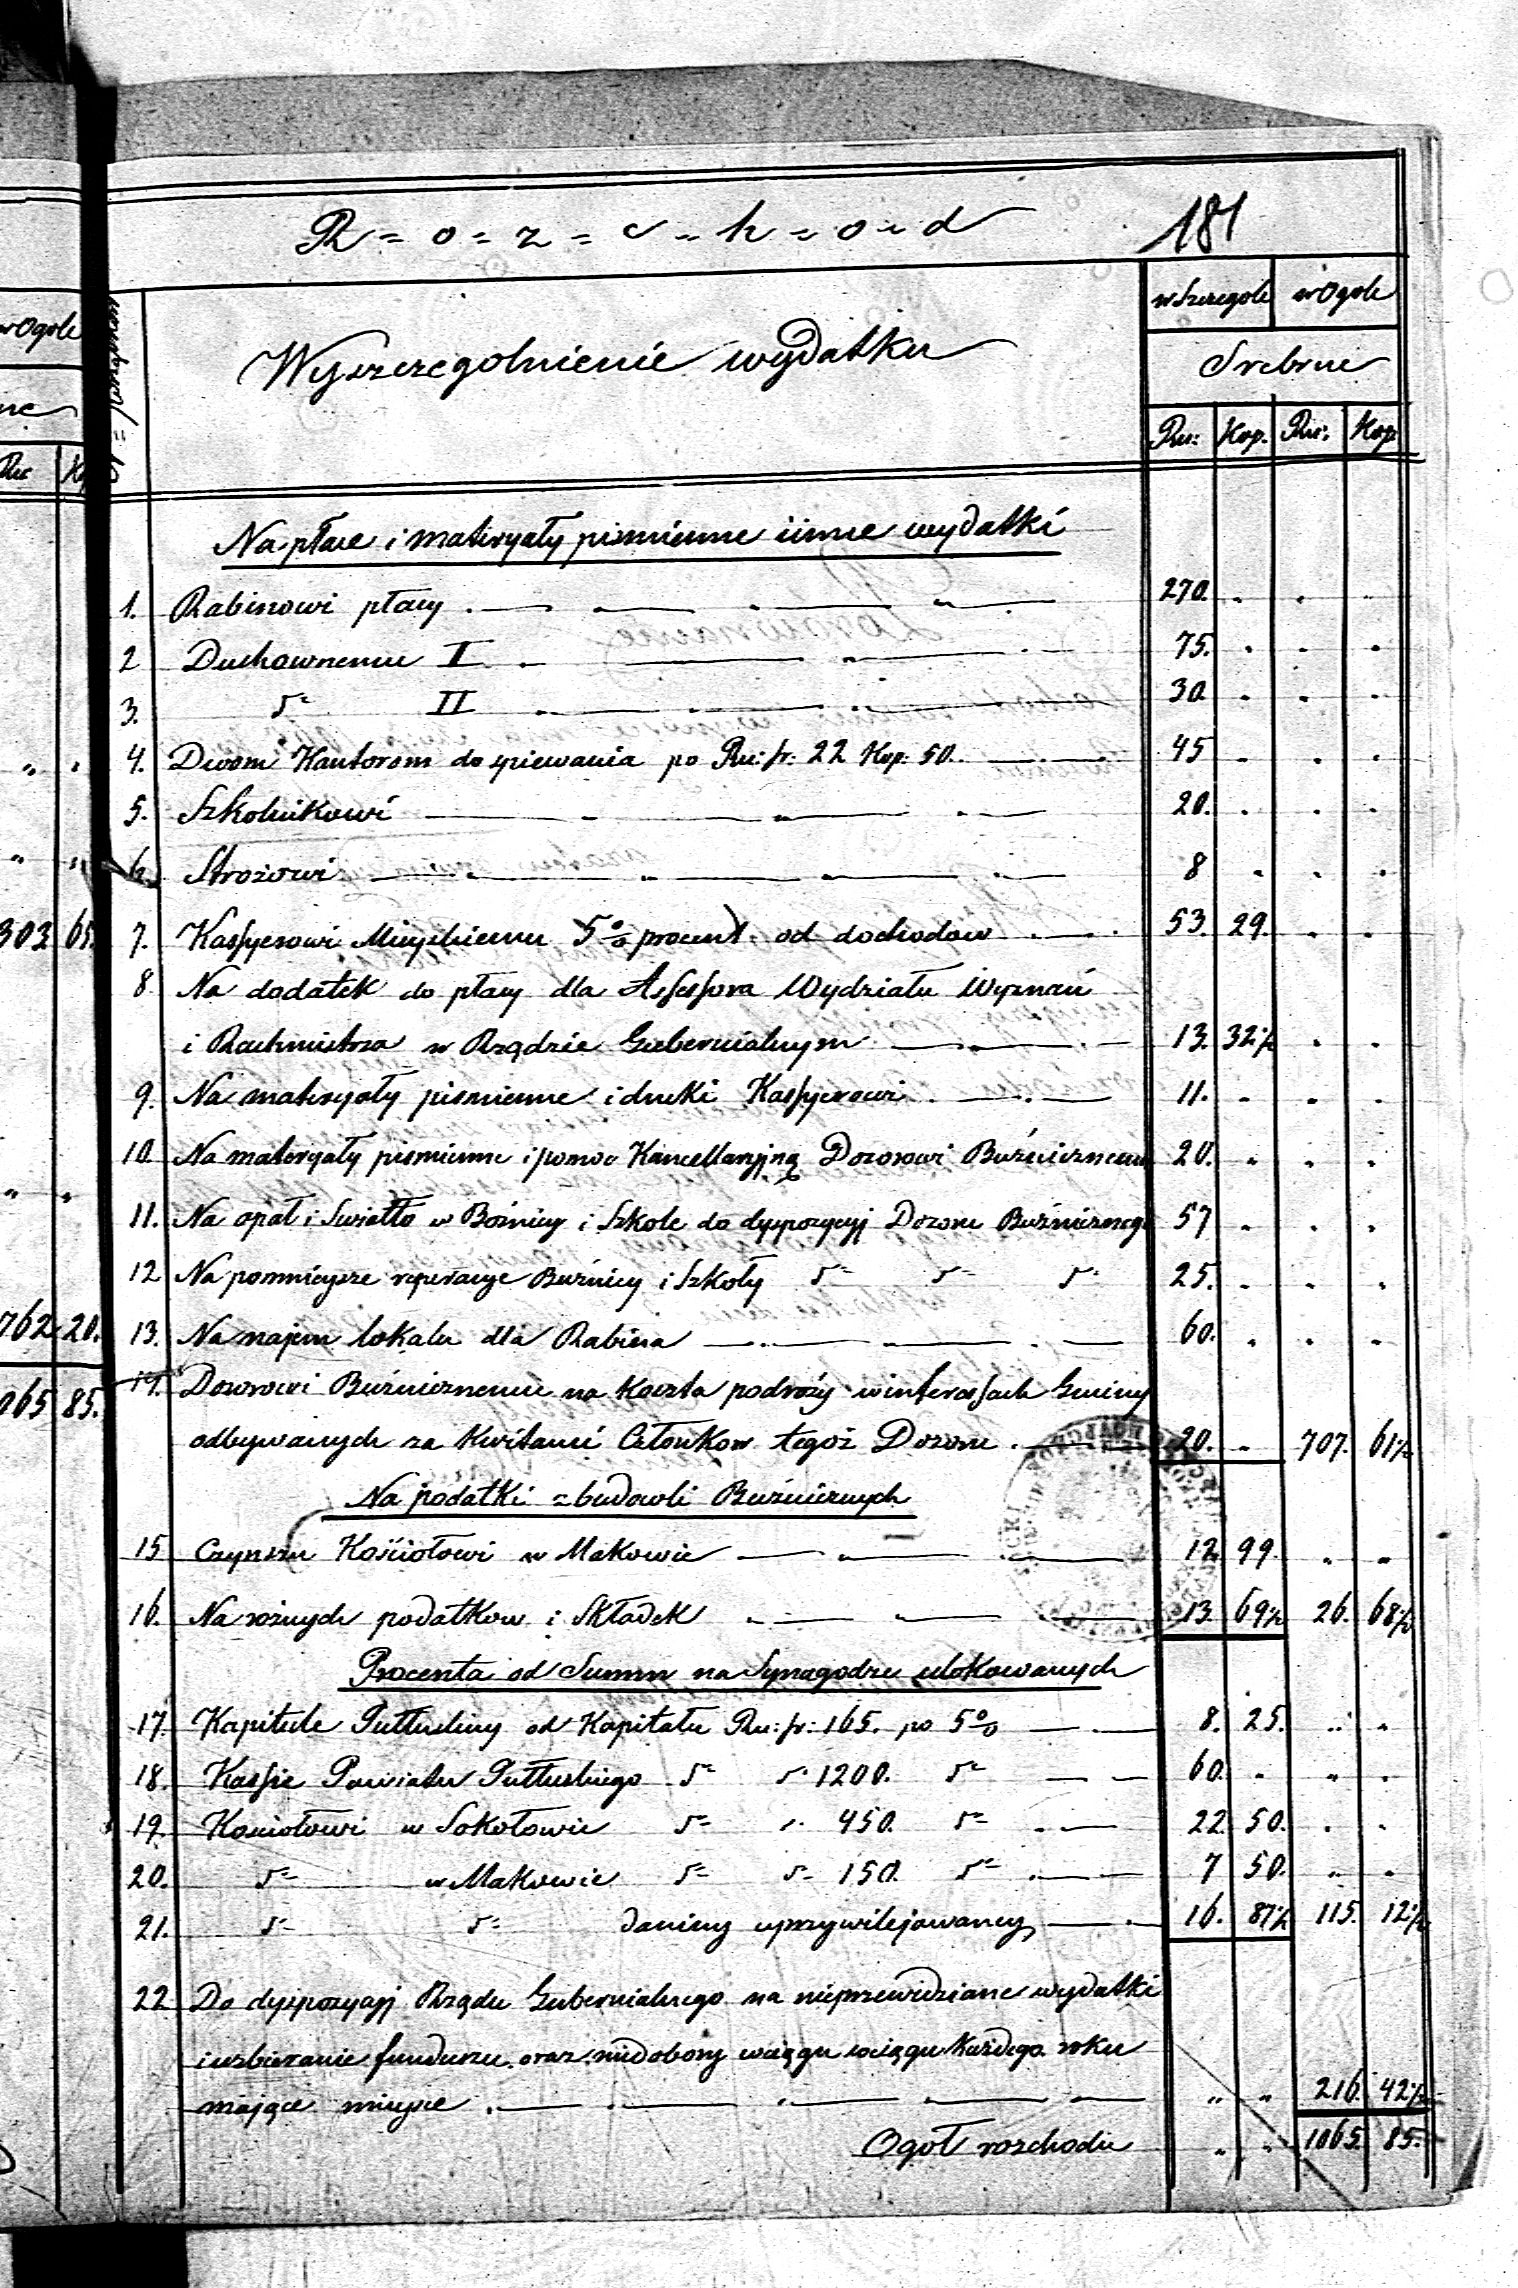 R = o = z = c = h = o = d
181
w Szczegole w Ogole
Wyszczegolnienie wydatku
Srebrne
Ru: Kop. Ru: Kop
Na płace i materyały piśmienne i inne wydatki
1. Rabinowi płacy 270. " " "
2 Duchownemu I 75. " " "
3. d° II 30 " " "
4. Dwom Kantorom do spiewania po Ru: sr: 22 Kop. 50. 45 " " "
5. Szkolnikowi 20. " " "
6. Strożowi 8 " " "
7. Kassyerowi Mieyskiemu 5% procent od dochodow 53. 29. " "
8 Na dodatek do płacy dla Assessora Wydziału Wyznań
i Rachmistrza w Rządzie Gubernialnym 13. 32½ " "
9. Na materyały piśmienne i druki Kassyerowi 11. " " "
10. Na materyały piśmienne i pomoc Kancellaryjną Dozorowi Buźnicznemu 20. " " "
11. Na opał i Swiatło w Bożnicy i Szkole do dyspozycyj Dozoru Buźnicznego 57 " " "
12 Na pomnieysze reperacye Buźnicy i Szkoły d° d° d° 25. " " "
13. Na najem lokalu dla Rabina 60. " " "
14. Dozorowi Buźnicznemu na koszta podroży w interessach Gminy
odbywanych za kwitami Członkow tegoż Dozoru 20. " 707. 61½
Na podatki z budowli Buźnicznych
15 Czynszu Kościołowi w Makowie 12 99 " "
16. Na rożnych podatkow i Składek 13. 69½ 26. 68½
Procenta od Summ na Synagodze ulokowanych
17. Kapitule Pułtuskiey od Kapitału Ru: sr: 165. po 5% 8. 25. " "
18. Kassie Powiatu Pułtuskiego d° d° 1200. d° 60. " " "
19. Kościołowi w Sokołowie d° d° 450. d° 22 50. " "
20. d° w Makowie d° d° 150. d° 7 50. " "
21. d° d° daniny uprzywilejowaney 16. 87½ 115. 12½
22 Do dyspozycyj Rządu Gubernialnego na nieprzewidziane wydatki
i uzbieranie funduszu oraz niedobory w ciągu w ciągu każdego roku
mające mieysce " " 216. 42½
Ogoł rozchodu " " 1065. 85.
w Ogole
Ru
303 65.
762 20.
1065 85.